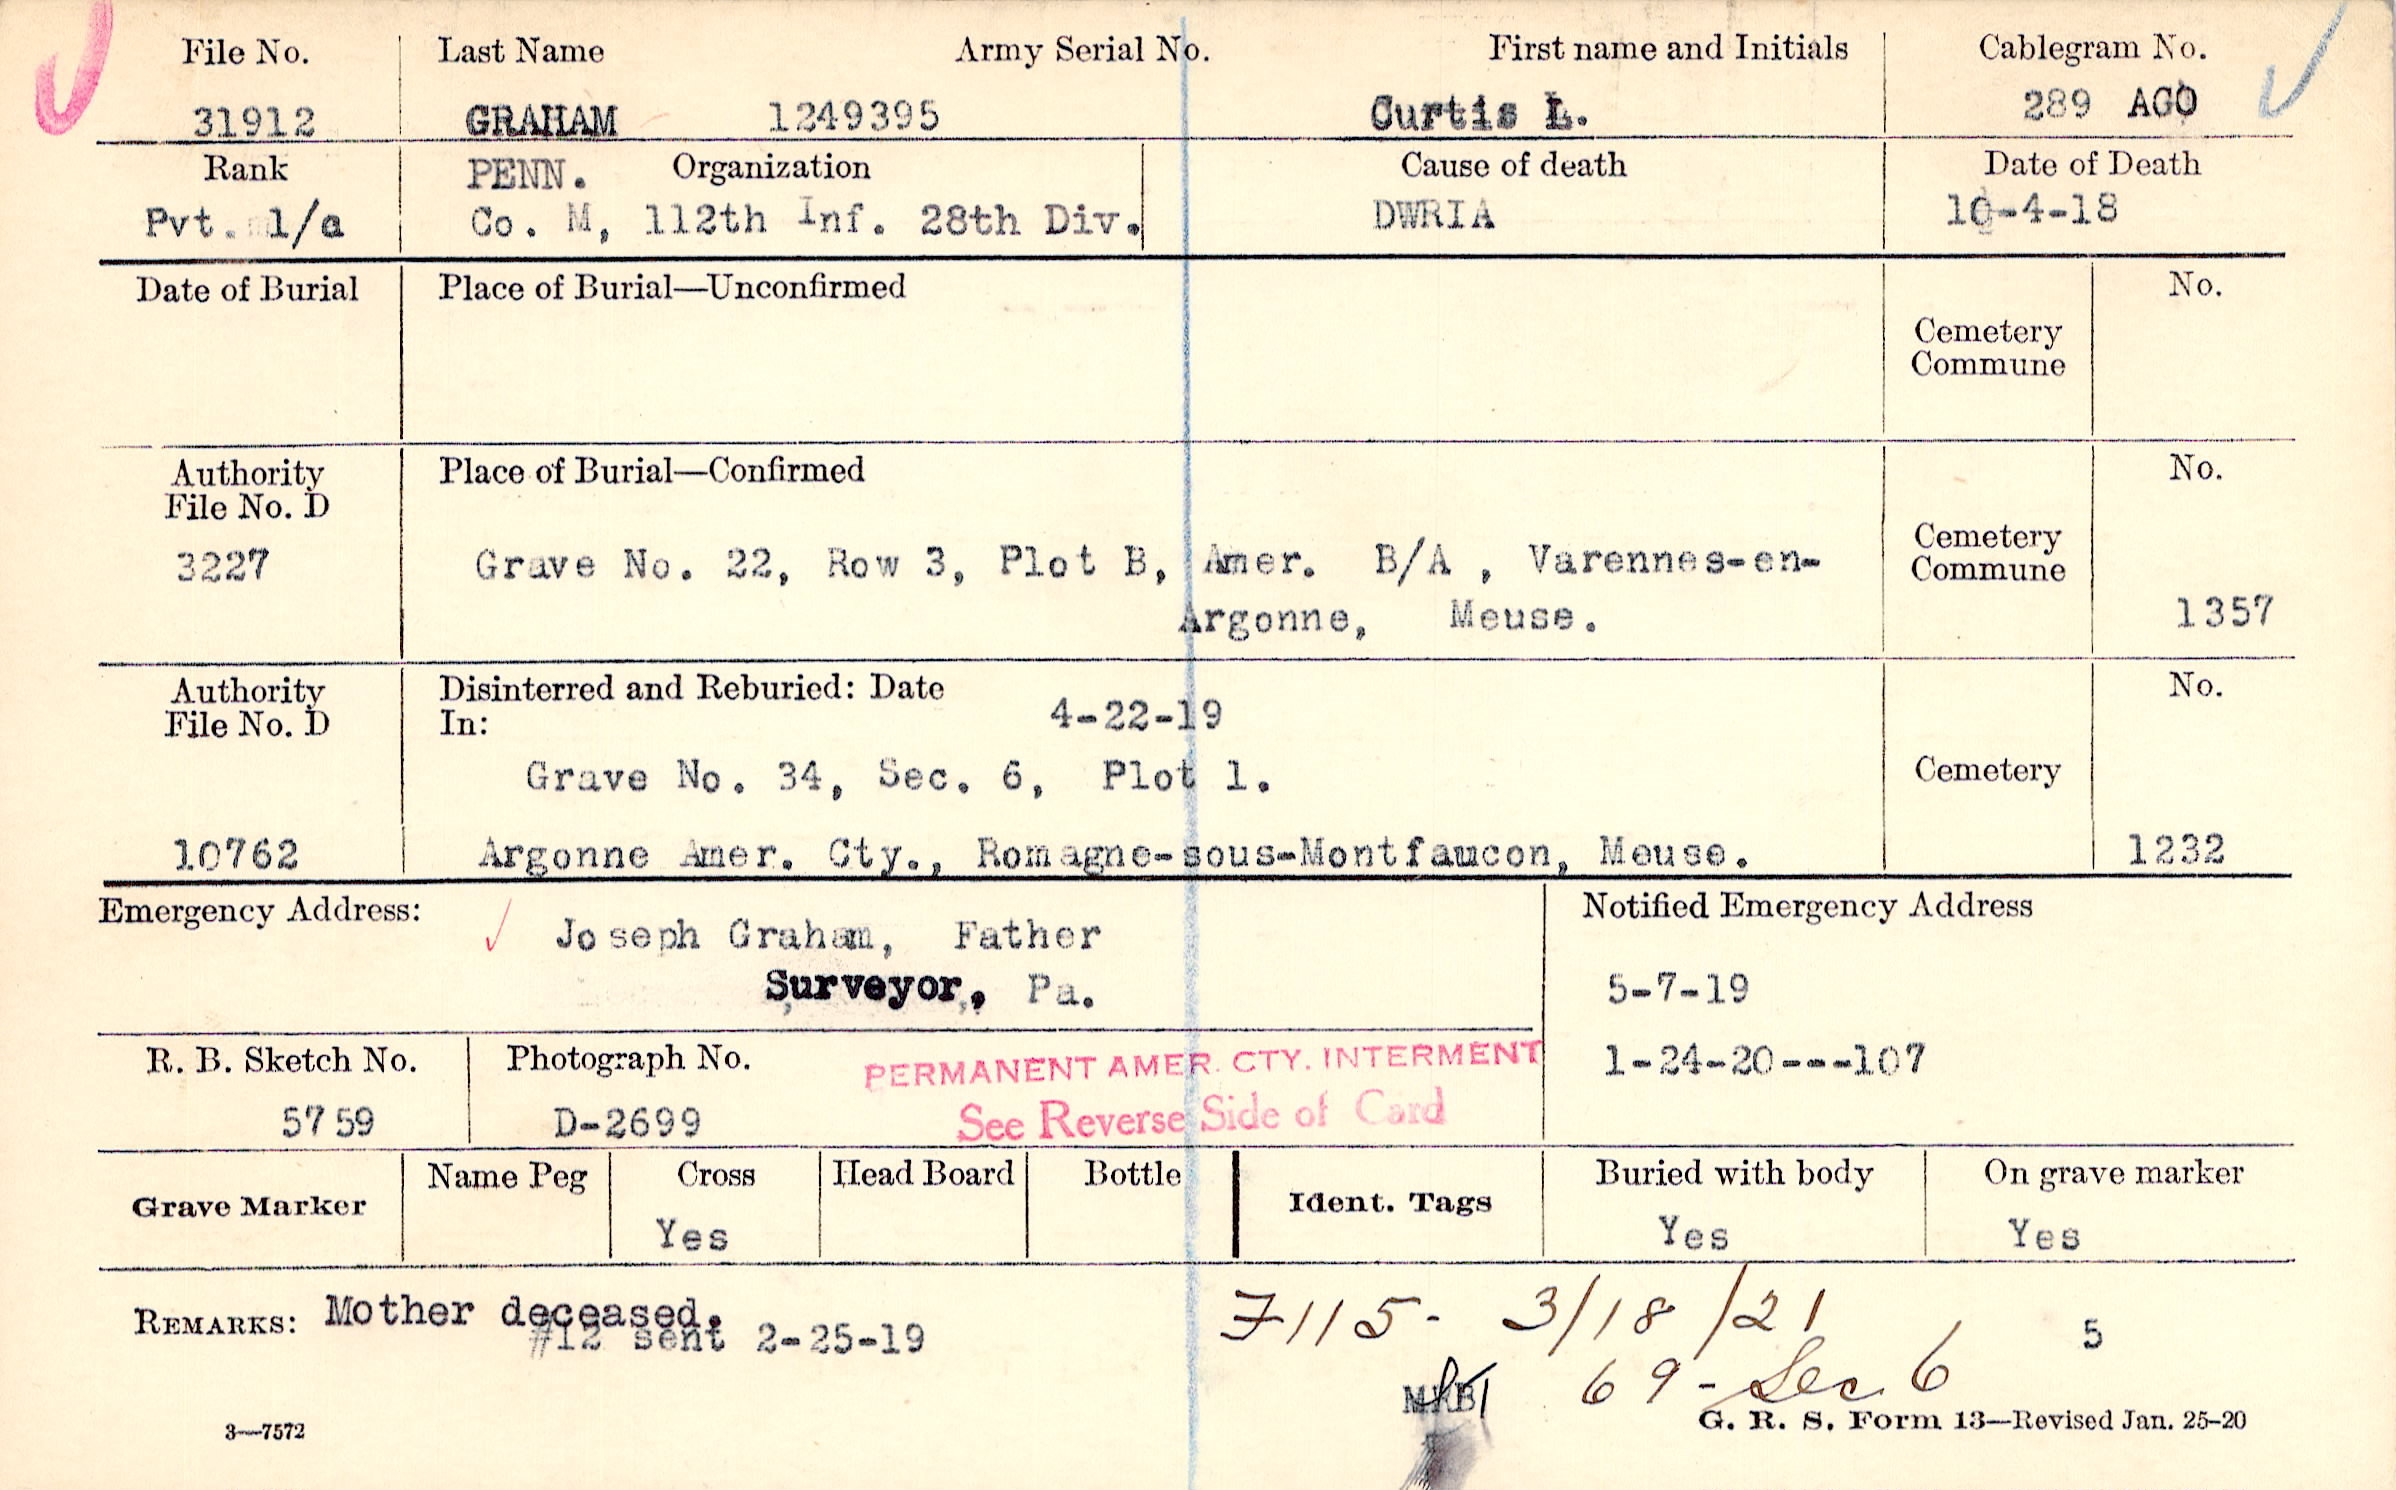 File No. Last Name Army Serial No. First name and Initials Cablegram No.
31912 GRAHAM 1249395 Curtis L. 289 AGO
Rank PENN. Organization Cause of death Date of Death
Pvt. 1/c Co. M, 112th Inf. 28th Div. DWRIA 10-4-18
Date of Burial Place of Burial—Unconfirmed No.
Cemetery
Commune
Authority Place of Burial—Confirmed No.
File No. D
Cemetery
3227 Grave No. 22, Row 3, Plot B, Amer. B/A , Varennes-en- Commune
Argonne, Meuse. 1357
Authority Disinterred and Reburied: Date No.
File No. D In: 4-22-19
Grave No. 34, Sec. 6, Plot 1. Cemetery
10762 Argonne Amer. Cty., Romagne-sous-Montfaucon, Meuse. 1232
Emergency Address: Notified Emergency Address
Joseph Graham, Father
Surveyor, Pa. 5-7-19
R. B. Sketch No. Photograph No. PERMANENT AMER. CTY. INTERMENT 1-24-20---107
5759 D-2699 See Reverse Side of Card
Grave Marker Name Peg Cross Head Board Bottle Ident. Tags Buried with body On grave marker
Yes Yes Yes
REMARKS: Mother deceased. 7115- 3/18/21
#12 sent 2-25-19 5
69-Sec. 6
3—7572 G. R. S. Form 13—Revised Jan. 25-20